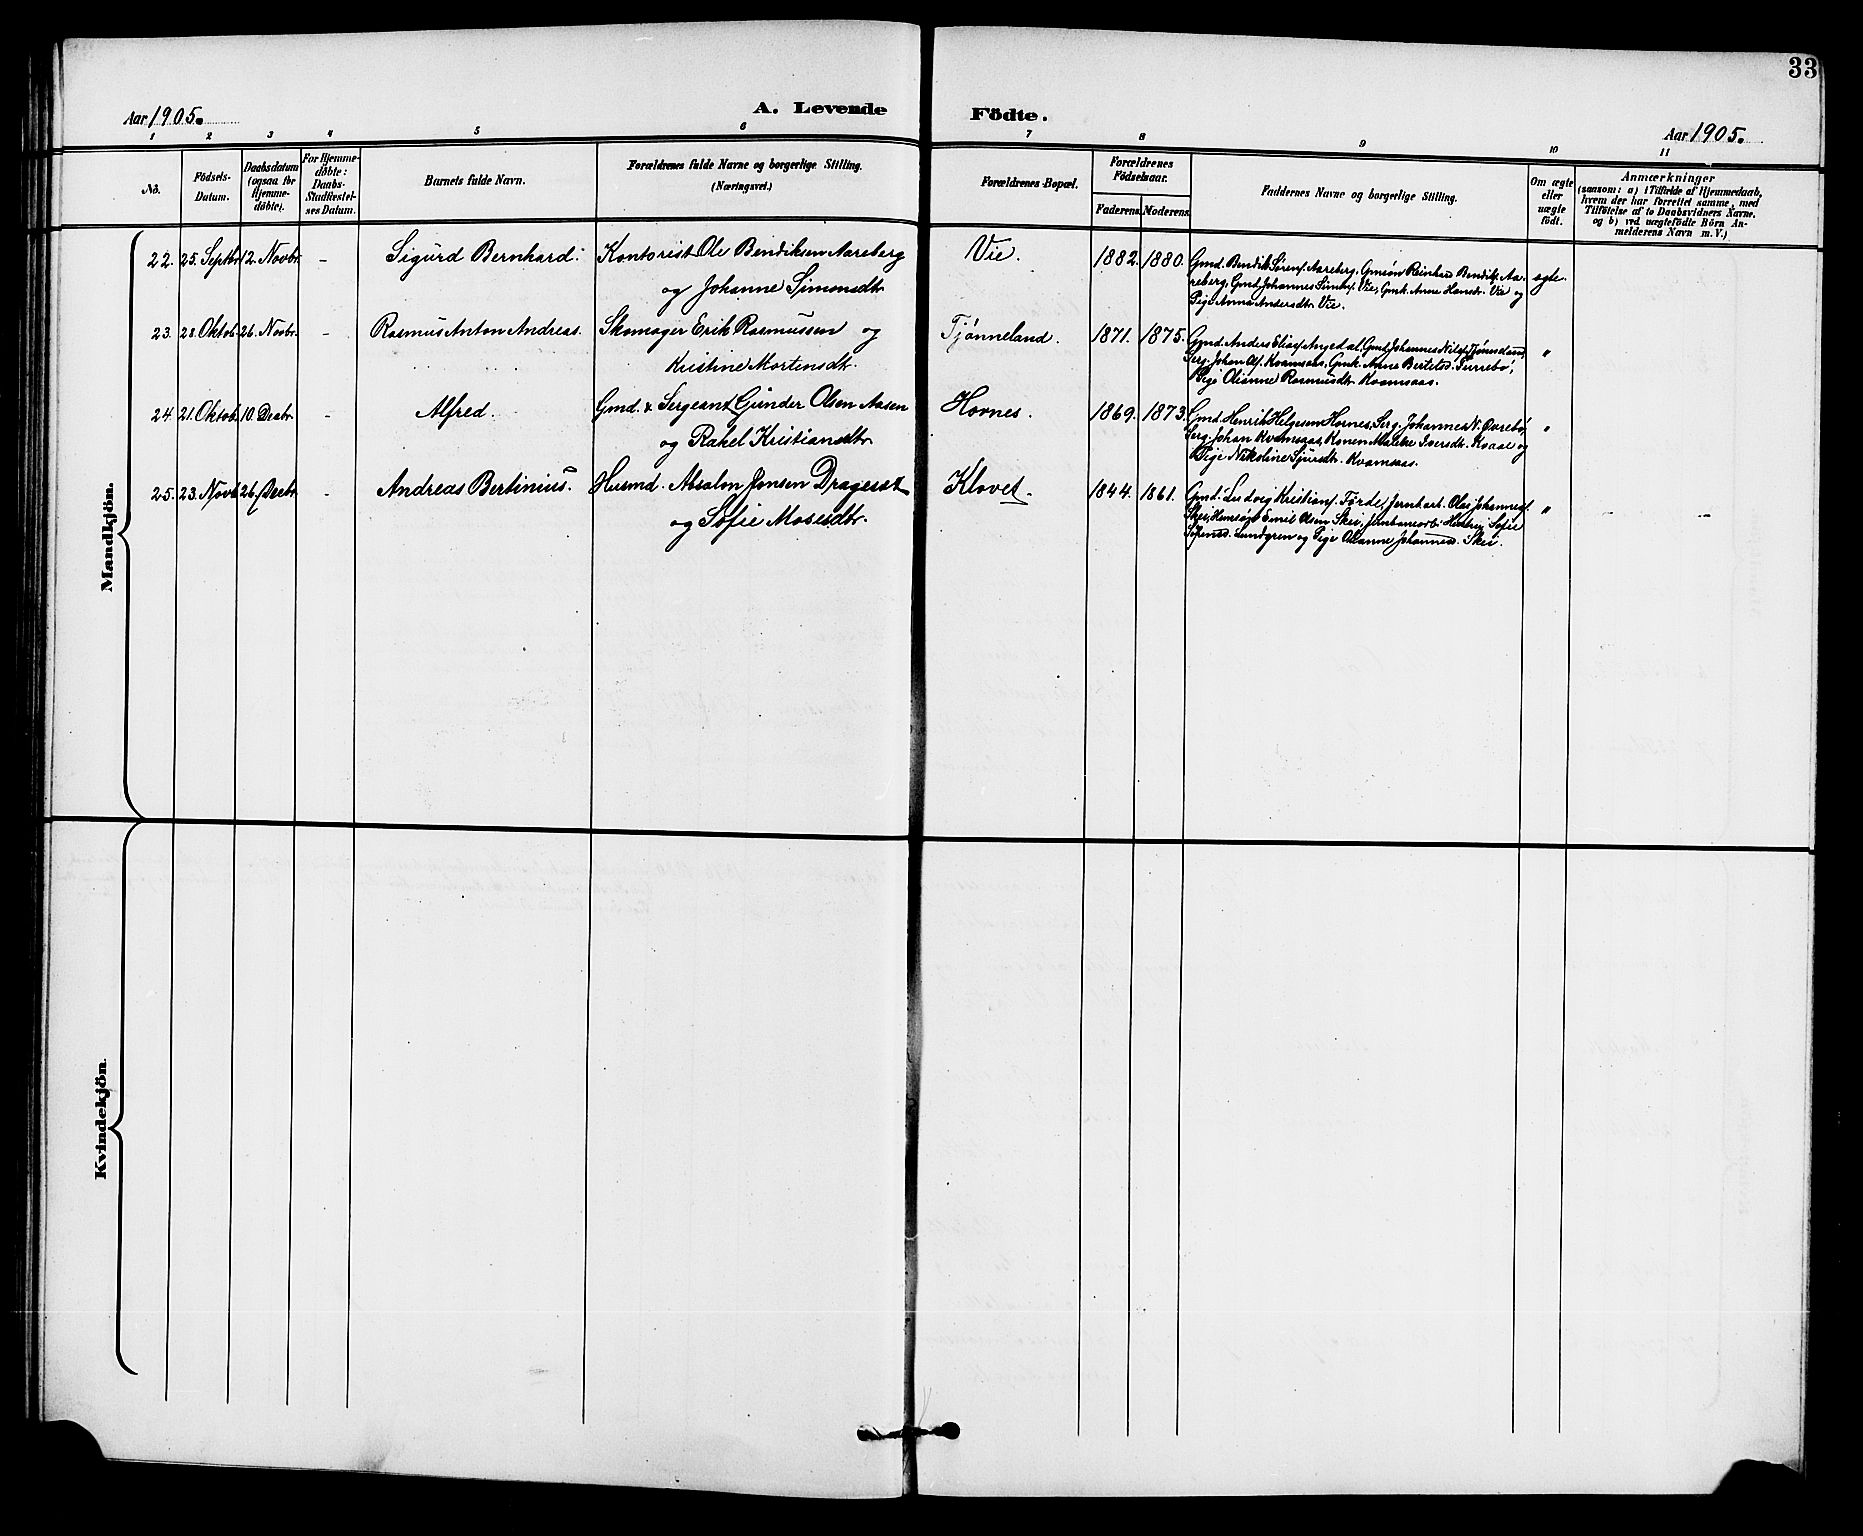 33
Aar 1905.
A. Levende Födte.
Aar 1905.
1 2 3 4 5 6 7 8 9 10 11
No.
Födsels-Datum.
Daabsdatum (ogsaa for Hjemme-döbte).
For Hjemme-döbte: Daabs-Stadfæstel-ses Datum.
Barnets fulde Navn.
Forældrenes fulde Navne og borgerlige Stilling.
(Næringsvei.)
Forældrenes Bopæl.
Forældrenes Födselsaar.
Faderens. Moderens.
Faddernes Navne og borgerlige Stilling.
Om ægte eller uægte födt.
Anmærkninger
(saasom: a) i Tilfælde af Hjemmedaab,
hvem der har forrettet samme, med
Tilföielse af to Daabsvidners Navne.
og b) ved uægtefödte Börn An-
melderens Navn m. V.)
Mandkjön.
22. 25. Septbr. 12. Novbr. - Sigurd Bernhard. Kontorist Ole Bendiksen Aareberg
og Johanne Simonsdtr.
Vie. 1882. 1880. Gmd. Bendik Sørens. Aareberg, Gmsøn Reinhard Bendiks. Aa-
reberg, Gmd. Johannes Simons. Vie, Gmk. Anne Hansdr. Vie og
Pige Anna Andersdtr. Vie.
ægte.
23. 28. Oktob. 26. Novbr. - Rasmus Anton Andreas. Skomager Erik Rasmussen og
Kristine Mortensdtr.
Tjønneland. 1871. 1875. Gmd. Anders Elias. Angedal, Gmd. Johannes Nils.
Serg. Johan Ols. Kvamsaas, Gmk. Anna Bertelsd.
Pige Olianne Rasmusdtr. Kvamsaas.
"
24. 21. Oktob. 10. Decbr. - Alfred. Gmd. & Sergeant Gunder Olsen Aasen
og Rakel Kristiansdtr.
Hornes. 1869. 1873. Gmd. Henrik Helgesen Hornes, Serg. Johannes N. Øvrebø,
Serg. Johan Kvamsaas, Konen Malene Iversdtr. Kvaal og
Pige Nikoline Sjursdtr. Kvamsaas.
"
25. 23. Novb. 26. Decbr. - Andreas Bertinius. Husmd. Absalon Jonsen Drageset
og Sofie Mosesdtr.
Klovet. 1844. 1861. Gmd. Ludvig Kristians. Førde, Jernbarb. Olai Johannes.
Skei, Emil Olsen Skei, Sofie
Lundgren og Pige Olianne Johannesd. Skei.
" - -
Kvindekjön.